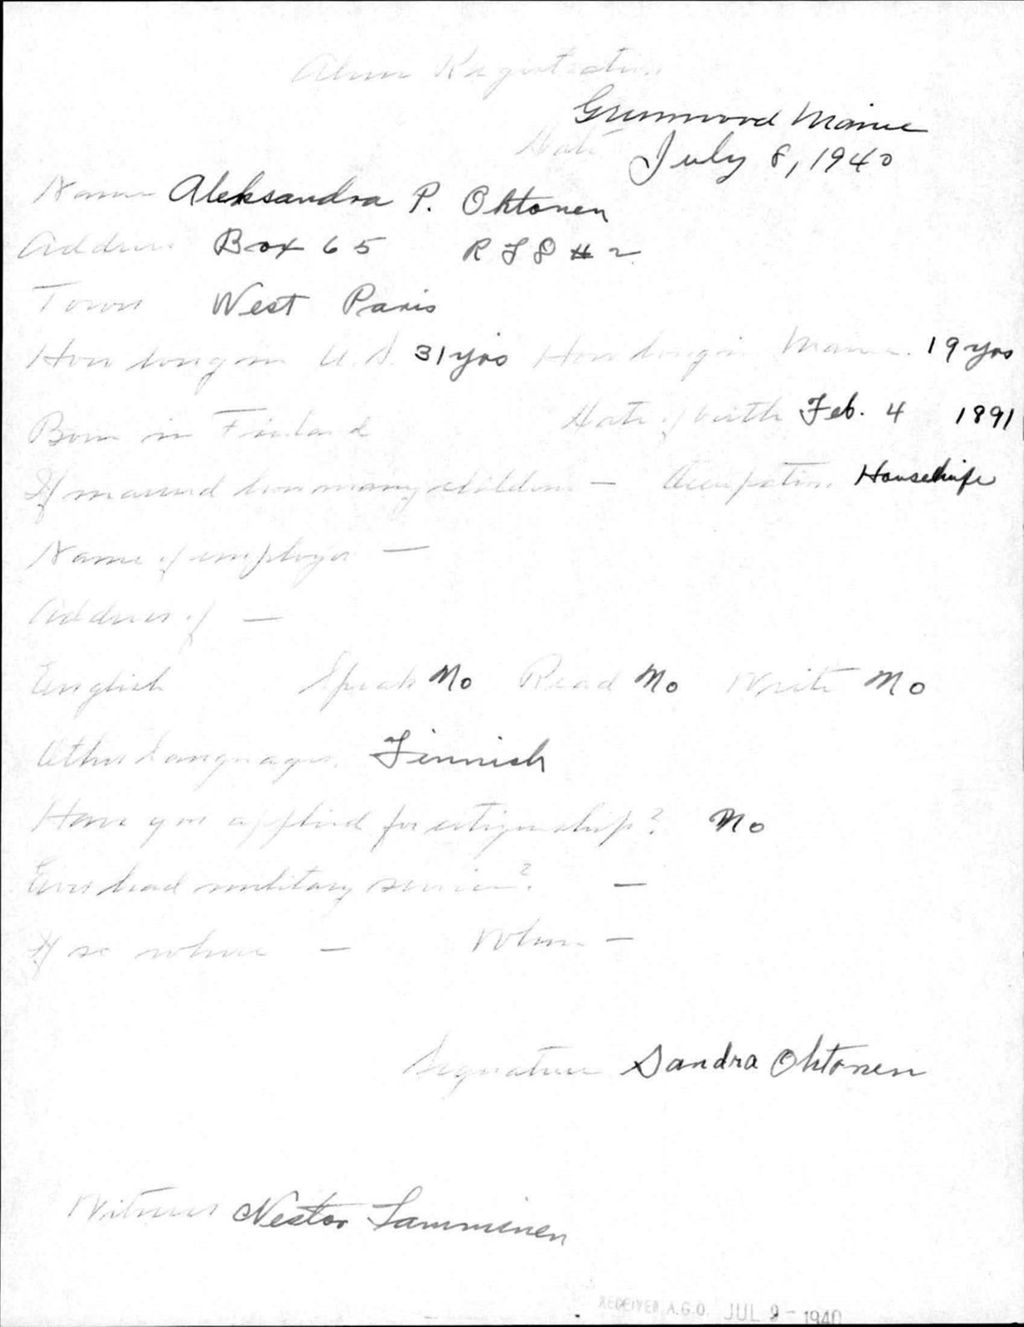 Alien Registration
Greenwood Maine
Date July 8, 1940
Name Aleksandra P. Ohtonen
Address Box 65 R F D # 2
Town West Paris
How long in U.S. 31 yrs How long in Maine 19 yrs
Born in Finland Date of birth Feb. 4 1891
If married how many children — Occupation Housewife
Name of employer —
Address of —
English Speak No Read No Write No
Other Languages Finnish
Have you applied for citizenship? No
Ever had military service? —
If so where — When —
Signature Sandra Ohtonen
Witness Nestor Tamminen
RECEIVED A.G.O. JUL 9 - 1940